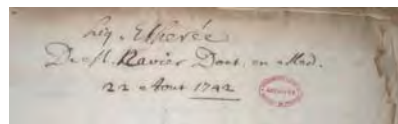 Liq. Etherée
De M. Navier Doct. en Med.
22 Aout 1742